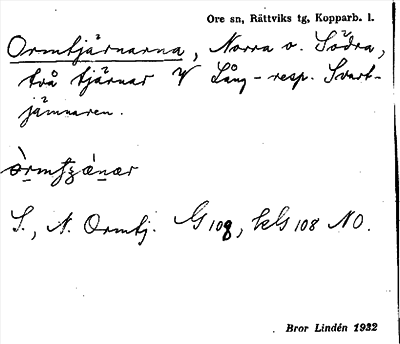 Ore sn, Rättviks tg, Kopparb. l.
Ormtjärnarna, Norra o. Södra,
två tjärnar V Lång- resp. Svart-
jämnaren.
S., N. Ormtj. G 108, hls 108 NO.
Bror Lindén 1932